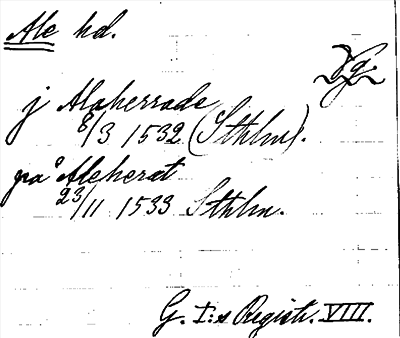 Ale hd.
Vg.
j Aleherrade
8/3 1532 (Sthlm).
på Aleherat
23/11 1533 Sthlm.
G. I:s Registr. VIII.